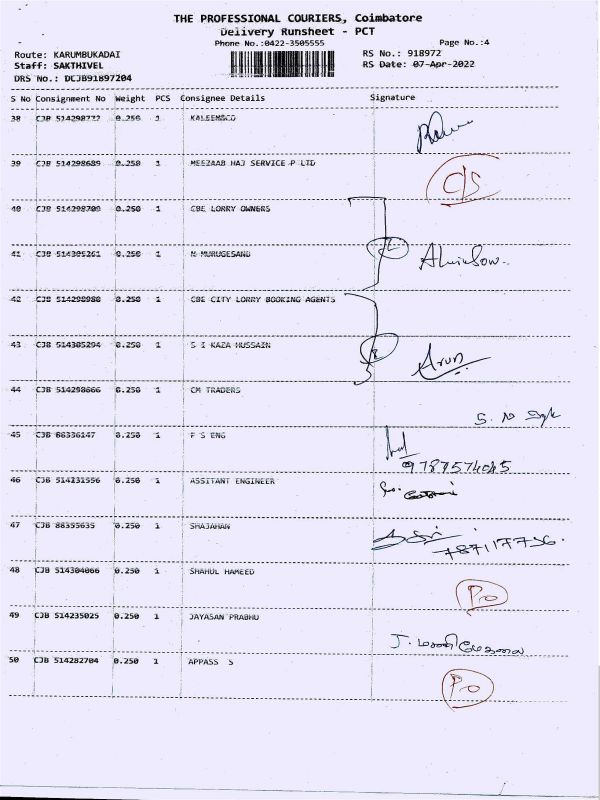 THE PROFESSIONAL COURIERS, Coimbatore
Delivery Runsheet - PCT
Phone No.:0422-3505555
Page No.:4
Route: KARUMBUKADAI
RS No.: 918972
Staff: SAKTHIVEL
RS Date: 07-Apr-2022
DRS No.: DCJB91897204
S No Consignment No Weight PCS Consignee Details Signature
38 CJB 514298772 0.250 1 KALEEM&CO
39 CJB 514298689 0.250 1 MEEZAAB HAJ SERVICE P LTD
C/S
40 CJB 514298709 0.250 1 CBE LORRY OWNERS
41 CJB 514305261 0.250 1 M MURUGESAND
42 CJB 514298980 0.250 1 CBE CITY LORRY BOOKING AGENTS
43 CJB 514305294 0.250 1 S I KAZA HUSSAIN
Arun
44 CJB 514298666 0.250 1 CM TRADERS
45 CJB 88336147 0.250 1 F S ENG
9787574045
46 CJB 514231556 0.250 1 ASSITANT ENGINEER
47 CJB 88355635 0.250 1 SHAJAHAN
48 CJB 514304066 0.250 1 SHAHUL HAMEED
PO
49 CJB 514235025 0.250 1 JAYASAN PRABHU
50 CJB 514282704 0.250 1 APPASS S
PO